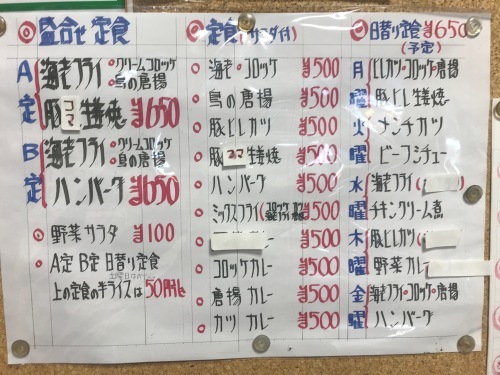 ◎盛合せ定食
A定
海老フライ・クリームコロッケ・鳥の唐揚
豚コマ生姜焼 ¥650
B定
海老フライ・クリームコロッケ・鳥の唐揚
ハンバーグ ¥650
◎野菜サラダ ¥100
◎A定B定日替り定食
上の定食の半ライスは50円引
◎定食(サラダ付)
○海老・コロッケ ¥500
○鳥の唐揚 ¥500
○豚ヒレカツ ¥500
○豚コマ生姜焼 ¥500
○ハンバーグ ¥500
○ミックスフライ ¥500
○ ¥500
○コロッケカレー ¥500
○唐揚カレー ¥500
○カツカレー ¥500
◎日替り定食 ¥650
(予定)
月曜
ヒレカツ・コロッケ・唐揚
豚ヒレ生姜焼
火曜
メンチカツ
ビーフシチュー
水曜
海老フライ
チキンクリーム煮
木曜
豚ヒレカツ
野菜カレー
金曜
海老フライ・コロッケ・唐揚
ハンバーグ